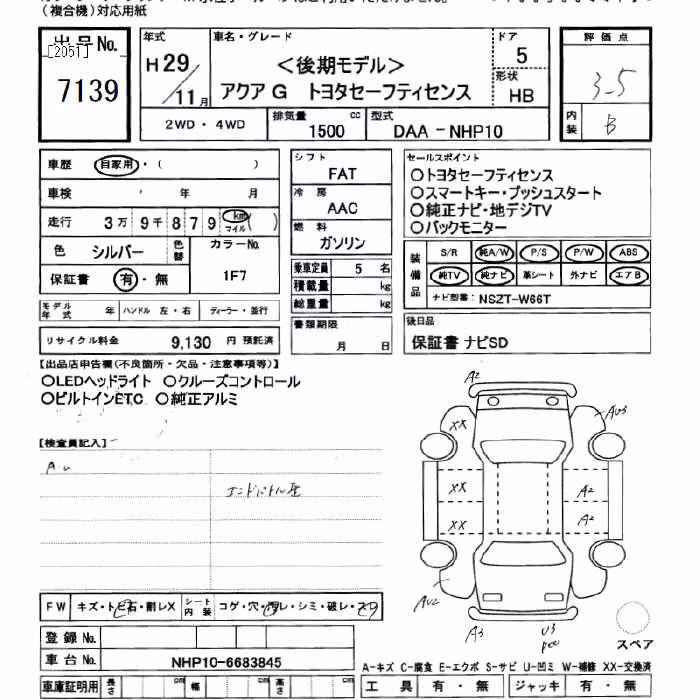 (複合機)対応用紙
出品No.
[2051]
7139
年式
H29/11月
車名・グレード
<後期モデル>
アクア G トヨタセーフティセンス
ドア
5
形状
HB
評価点
3.5
内装
B
2WD・4WD
排気量 1500 cc
型式 DAA-NHP10
車歴 自家用・( )
車検 年 月
走行 3万9千879 km マイル ( )
色 シルバー 色替 カラーNo. 1F7
保証書 有・無
モデル年式 年 ハンドル 左・右 ディーラー・並行
リサイクル料金 9,130 円 預託済
シフト
FAT
冷房
AAC
燃料
ガソリン
乗車定員 5 名
積載量 kg
総重量 kg
書類期限
月 日
セールスポイント
○トヨタセーフティセンス
○スマートキー・プッシュスタート
○純正ナビ・地デジTV
○バックモニター
装備品
S/R 純A/W P/S P/W ABS
純TV 純ナビ 革シート 外ナビ エアB
ナビ型番: NSZT-W66T
後日品
保証書 ナビSD
【出品店申告欄(不良箇所・欠品・注意事項等)】
○LEDヘッドライト ○クルーズコントロール
○ビルトインETC ○純正アルミ
【検査員記入】
A.u
エンドパトル歪
A2
AU3
XX
XX
A2
XX
A2
AU2
A3
U3
スペア
FW キズ・トビ石・割レX シート内装 コゲ・穴・汚レ・シミ・破レ・スレ
登録No.
車台No. NHP10-6683845
車庫証明用 長さ cm 幅 cm 高さ cm
A-キズ C-腐食 E-エクボ S-サビ U-凹ミ W-補修 XX-交換済
工具 有・無 ジャッキ 有・無